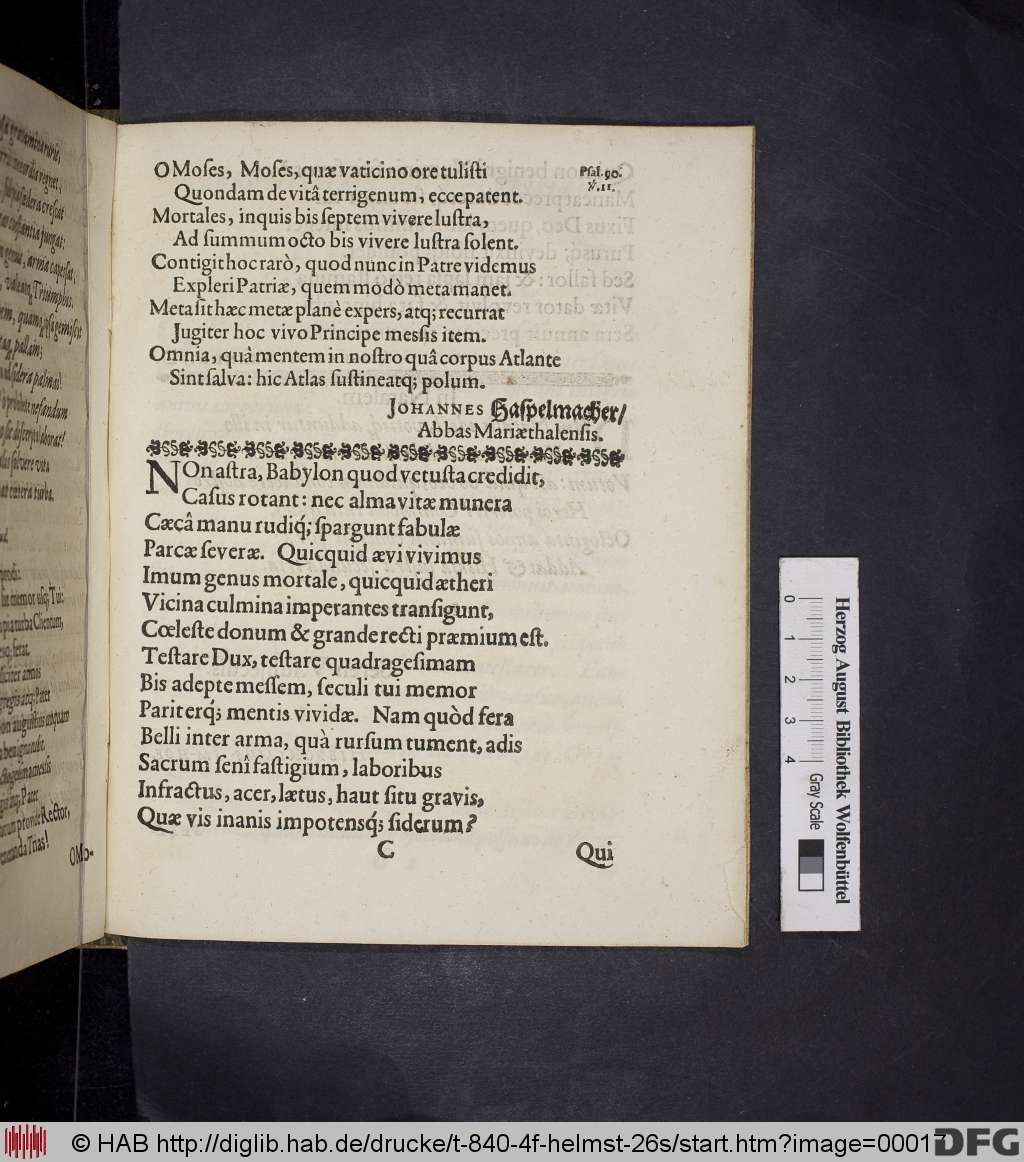 O Moses, Moses, quæ vaticino ore tulisti
Psal. 90.
Quondam de vitâ terrigenum, ecce patent.
℣. 11.
Mortales, inquis bis septem vivere lustra,
Ad summum octo bis vivere lustra solent.
Contigit hoc rarò, quod nunc in Patre videmus
Expleri Patriæ, quem modò meta manet.
Meta sit hæc metæ planè expers, atq; recurrat
Jugiter hoc vivo Principe messis item.
Omnia, quà mentem in nostro quâ corpus Atlante
Sint salva: hic Atlas sustineatq; polum.
JOHANNES Haspelmacher/
Abbas Mariæthalensis.
NOn astra, Babylon quod vetusta credidit,
Casus rotant: nec alma vitæ munera
Cæcâ manu rudiq́; spargunt fabulæ
Parcæ severæ. Quicquid ævi vivimus
Imum genus mortale, quicquid ætheri
Vicina culmina imperantes transigunt,
Cœleste donum & grande recti præmium est.
Testare Dux, testare quadragesimam
Bis adepte messem, seculi tui memor
Pariterq́; mentis vividæ. Nam quòd fera
Belli inter arma, quà rursum tument, adis
Sacrum senî fastigium, laboribus
Infractus, acer, lætus, haut situ gravis,
Quæ vis inanis impotensq́; siderum?
C
Qui
OMo-
0 1 2 3 4
Gray Scale
Herzog August Bibliothek Wolfenbüttel
© HAB http://diglib.hab.de/drucke/t-840-4f-helmst-26s/start.htm?image=00017
DFG